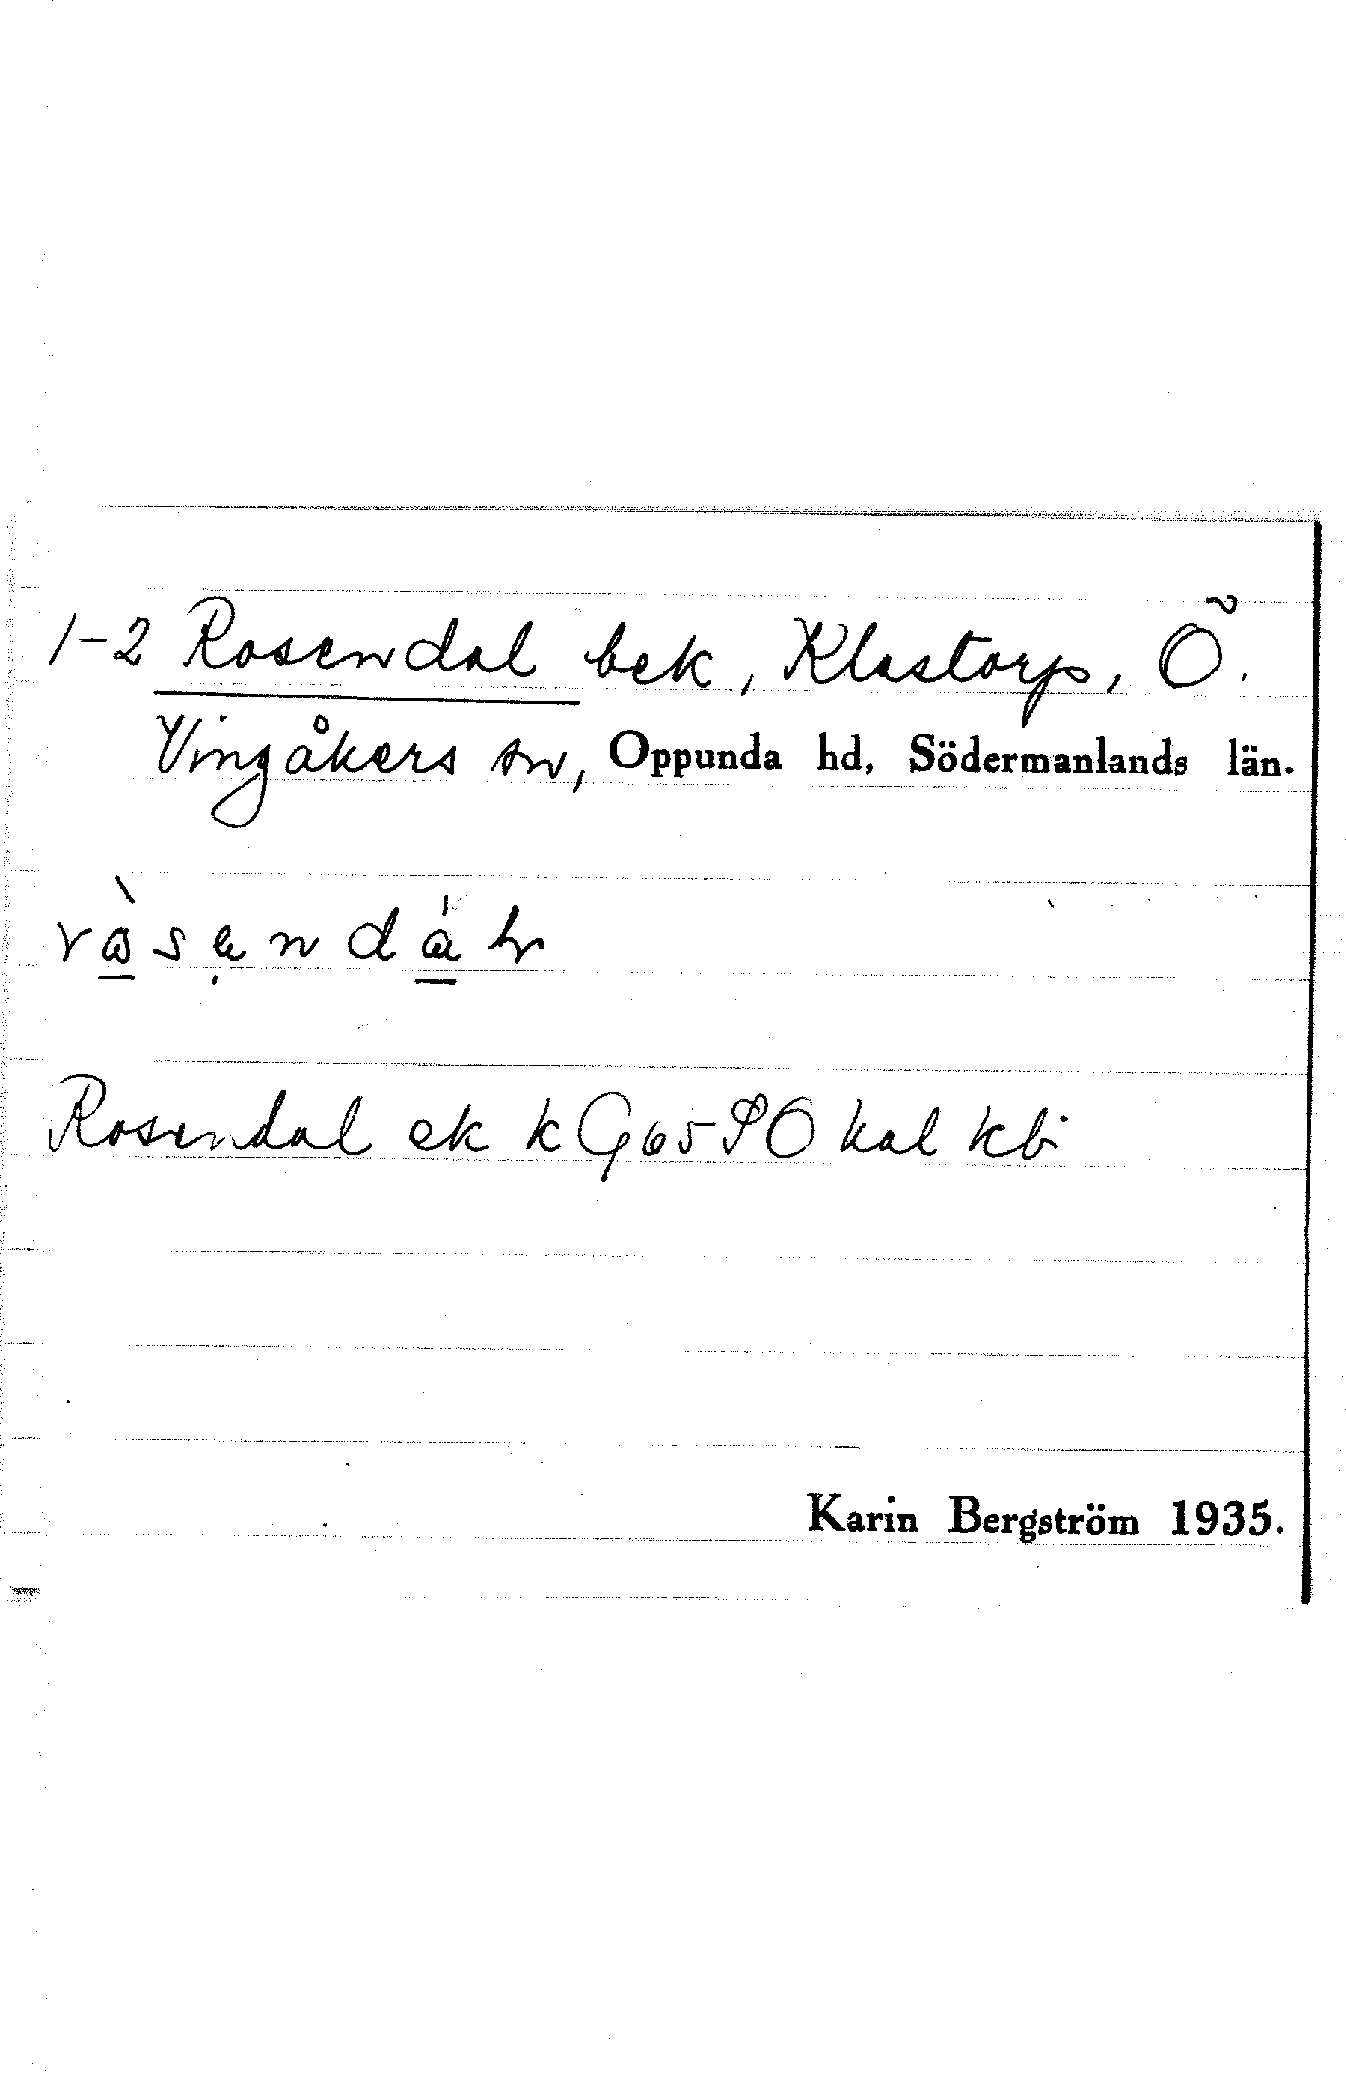 1-2 Rosendal bek, Klastorp, Ö.
Vingåkers sn, Oppunda hd, Södermanlands län.
Rosendal ek k G 65 SO kal kbi
Karin Bergström 1935.